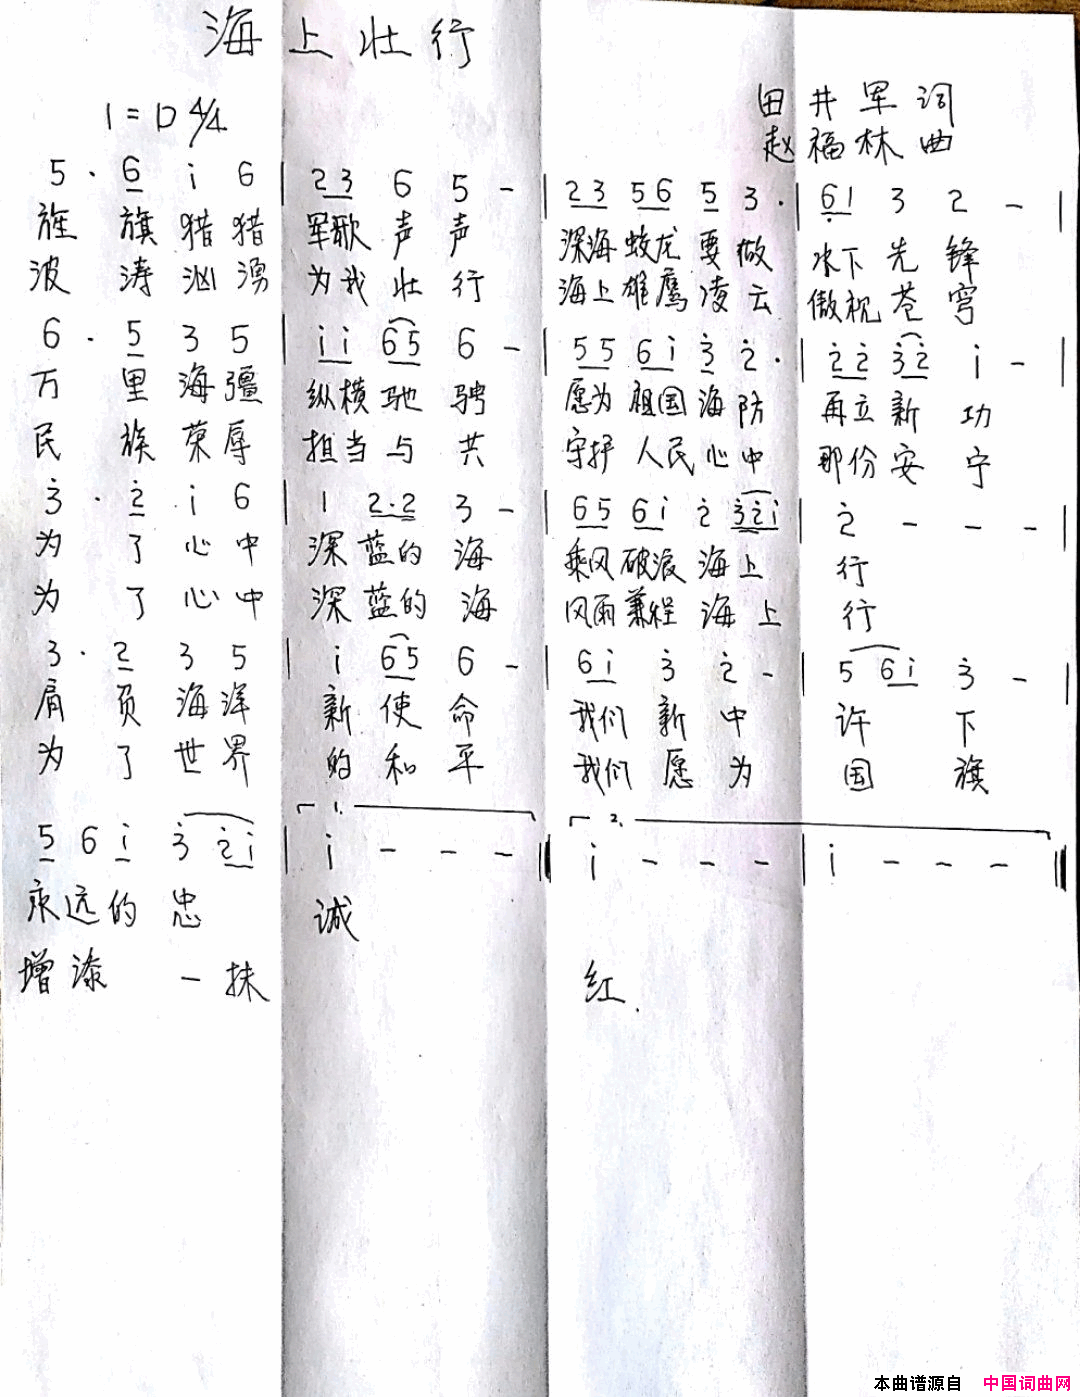 海上壮行
1=D 4/4
田井军词
赵福林曲
5· 6 i 6 | 23 6 5 - | 23 56 5 3· | 61 3 2 - |
旌旗猎猎 军歌声声 深海蛟龙要做 水下先锋
波涛汹湧 为我壮行 海上雄鹰凌云 傲视苍穹
6· 5 3 5 | ii 65 6 - | 55 6i 3 2· | 22 32 i - |
万里海疆 纵横驰骋 愿为祖国海防 再立新功
民族荣辱 担当与共 守护人民心中 那份安宁
3· 2 i 6 | 1 2·2 3 - | 65 6i 2 32i | 2 - - -
为了心中 深蓝的海 乘风破浪海上 行
为了心中 深蓝的海 风雨兼程海上 行
3· 2 3 5 | i 65 6 - | 6i 3 2 - | 5 6i 3 - |
肩负海洋 新使命 我们新中 许下
为了世界 的和平 我们愿为 国旗
1. 2.
5 6 i 3 2i | i - - - || i - - - | i - - - ||
永远的忠 诚
增添一抹 红.
本曲谱源自 中国词曲网